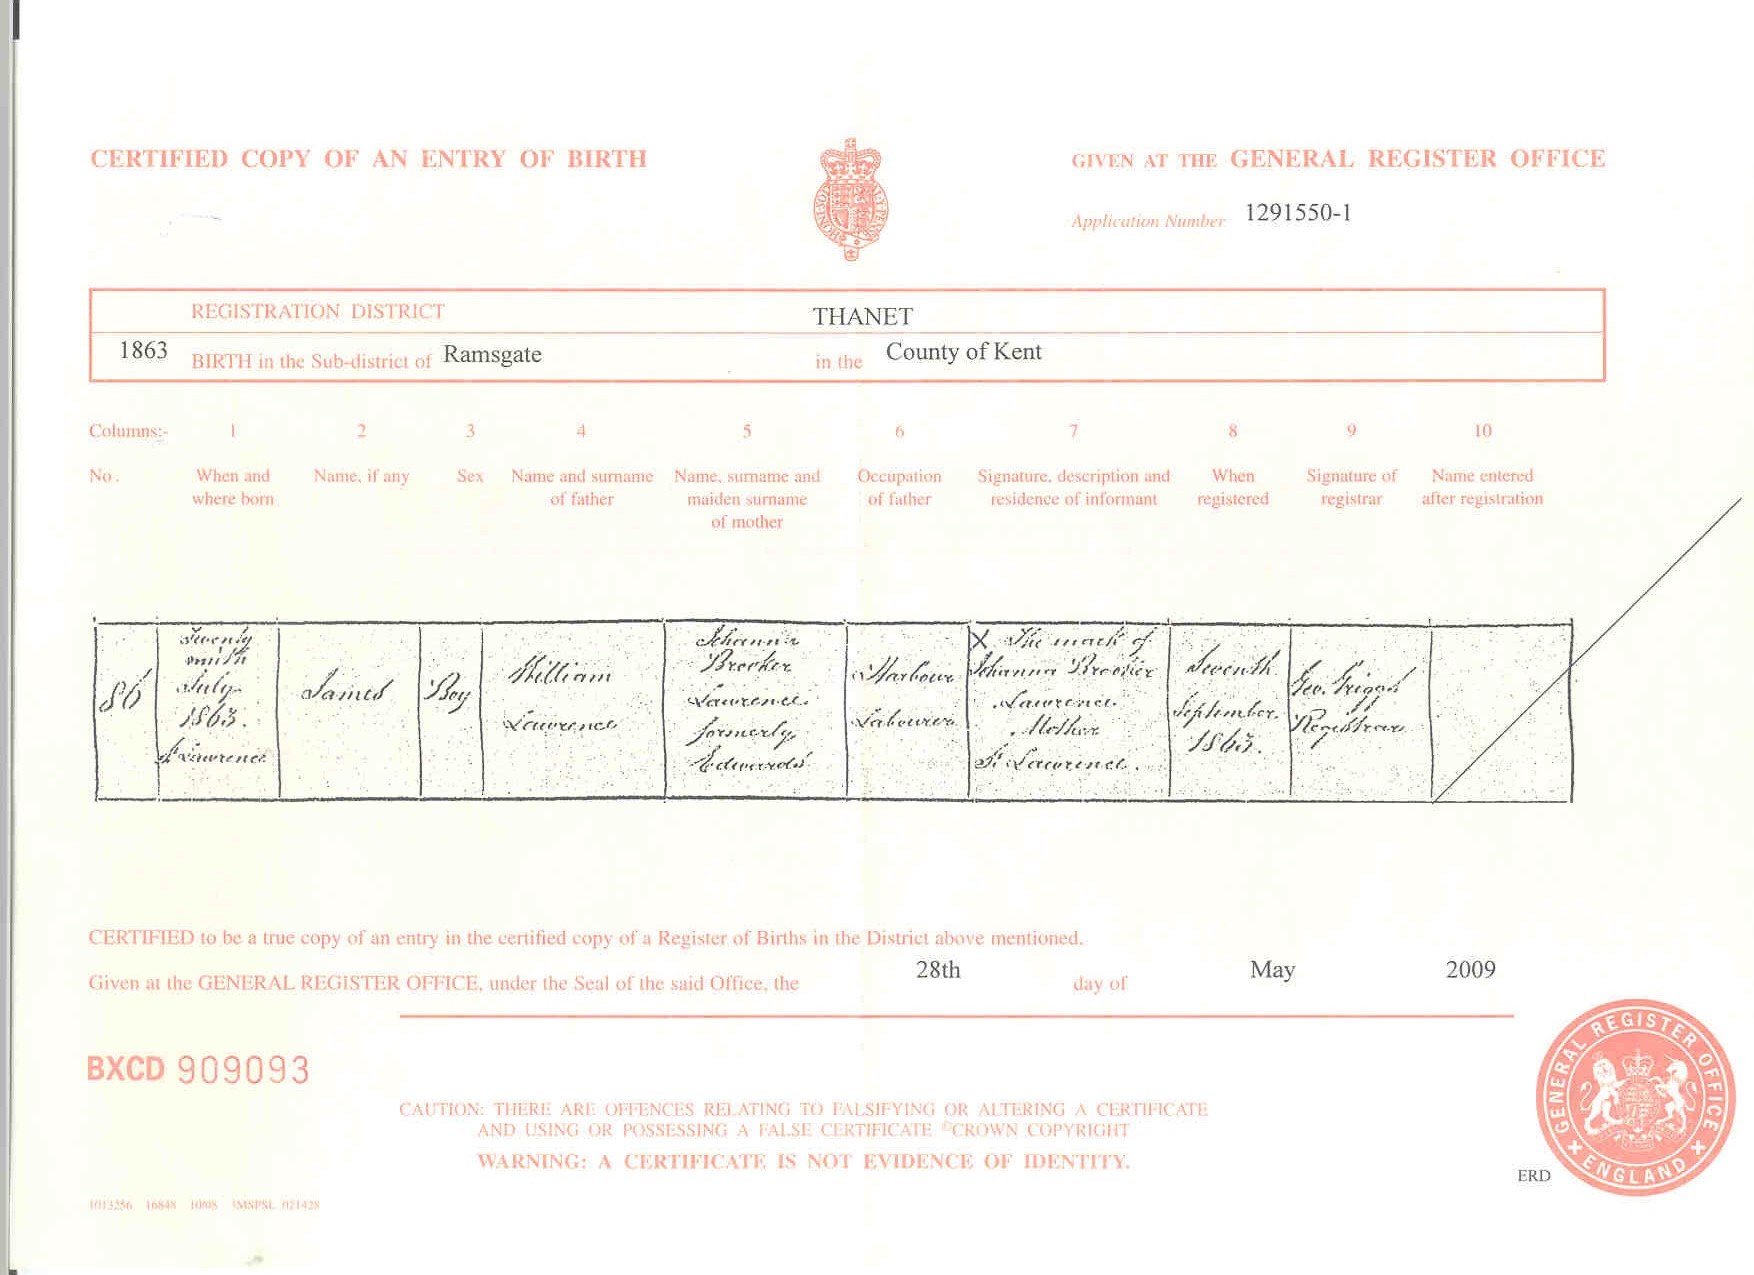 CERTIFIED COPY OF AN ENTRY OF BIRTH
GIVEN AT THE GENERAL REGISTER OFFICE
Application Number 1291550-1
REGISTRATION DISTRICT THANET
1863 BIRTH in the Sub-district of Ramsgate in the County of Kent
Columns:- 1 2 3 4 5 6 7 8 9 10
No. When and where born
Name, if any
Sex
Name and surname of father
Name, surname and maiden surname of mother
Occupation of father
Signature, description and residence of informant
When registered
Signature of registrar
Name entered after registration
86
Twenty
ninth
July
1863.
St Lawrence
James
Boy
William
Lawrence
Johanna
Brooker
Lawrence
formerly
Edwards
Harbour
Labourer
X The mark of
Johanna Brooker
Lawrence
Mother
St Lawrence.
Seventh
September
1863.
Geo. Griggs
Registrar
CERTIFIED to be a true copy of an entry in the certified copy of a Register of Births in the District above mentioned.
Given at the GENERAL REGISTER OFFICE, under the Seal of the said Office, the 28th day of May 2009
BXCD 909093
CAUTION: THERE ARE OFFENCES RELATING TO FALSIFYING OR ALTERING A CERTIFICATE
AND USING OR POSSESSING A FALSE CERTIFICATE ©CROWN COPYRIGHT
WARNING: A CERTIFICATE IS NOT EVIDENCE OF IDENTITY.
GENERAL REGISTER OFFICE
ENGLAND
ERD
1013256 16848 10/08 3MSPSL 021428